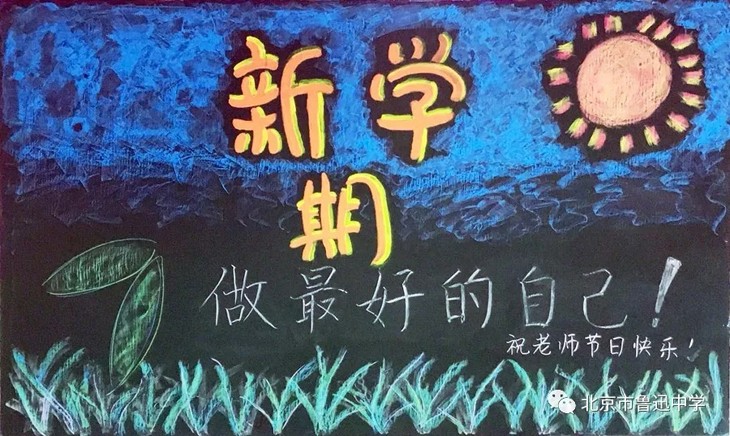 新学
期
做最好的自己！
祝老师节日快乐！
北京市鲁迅中学